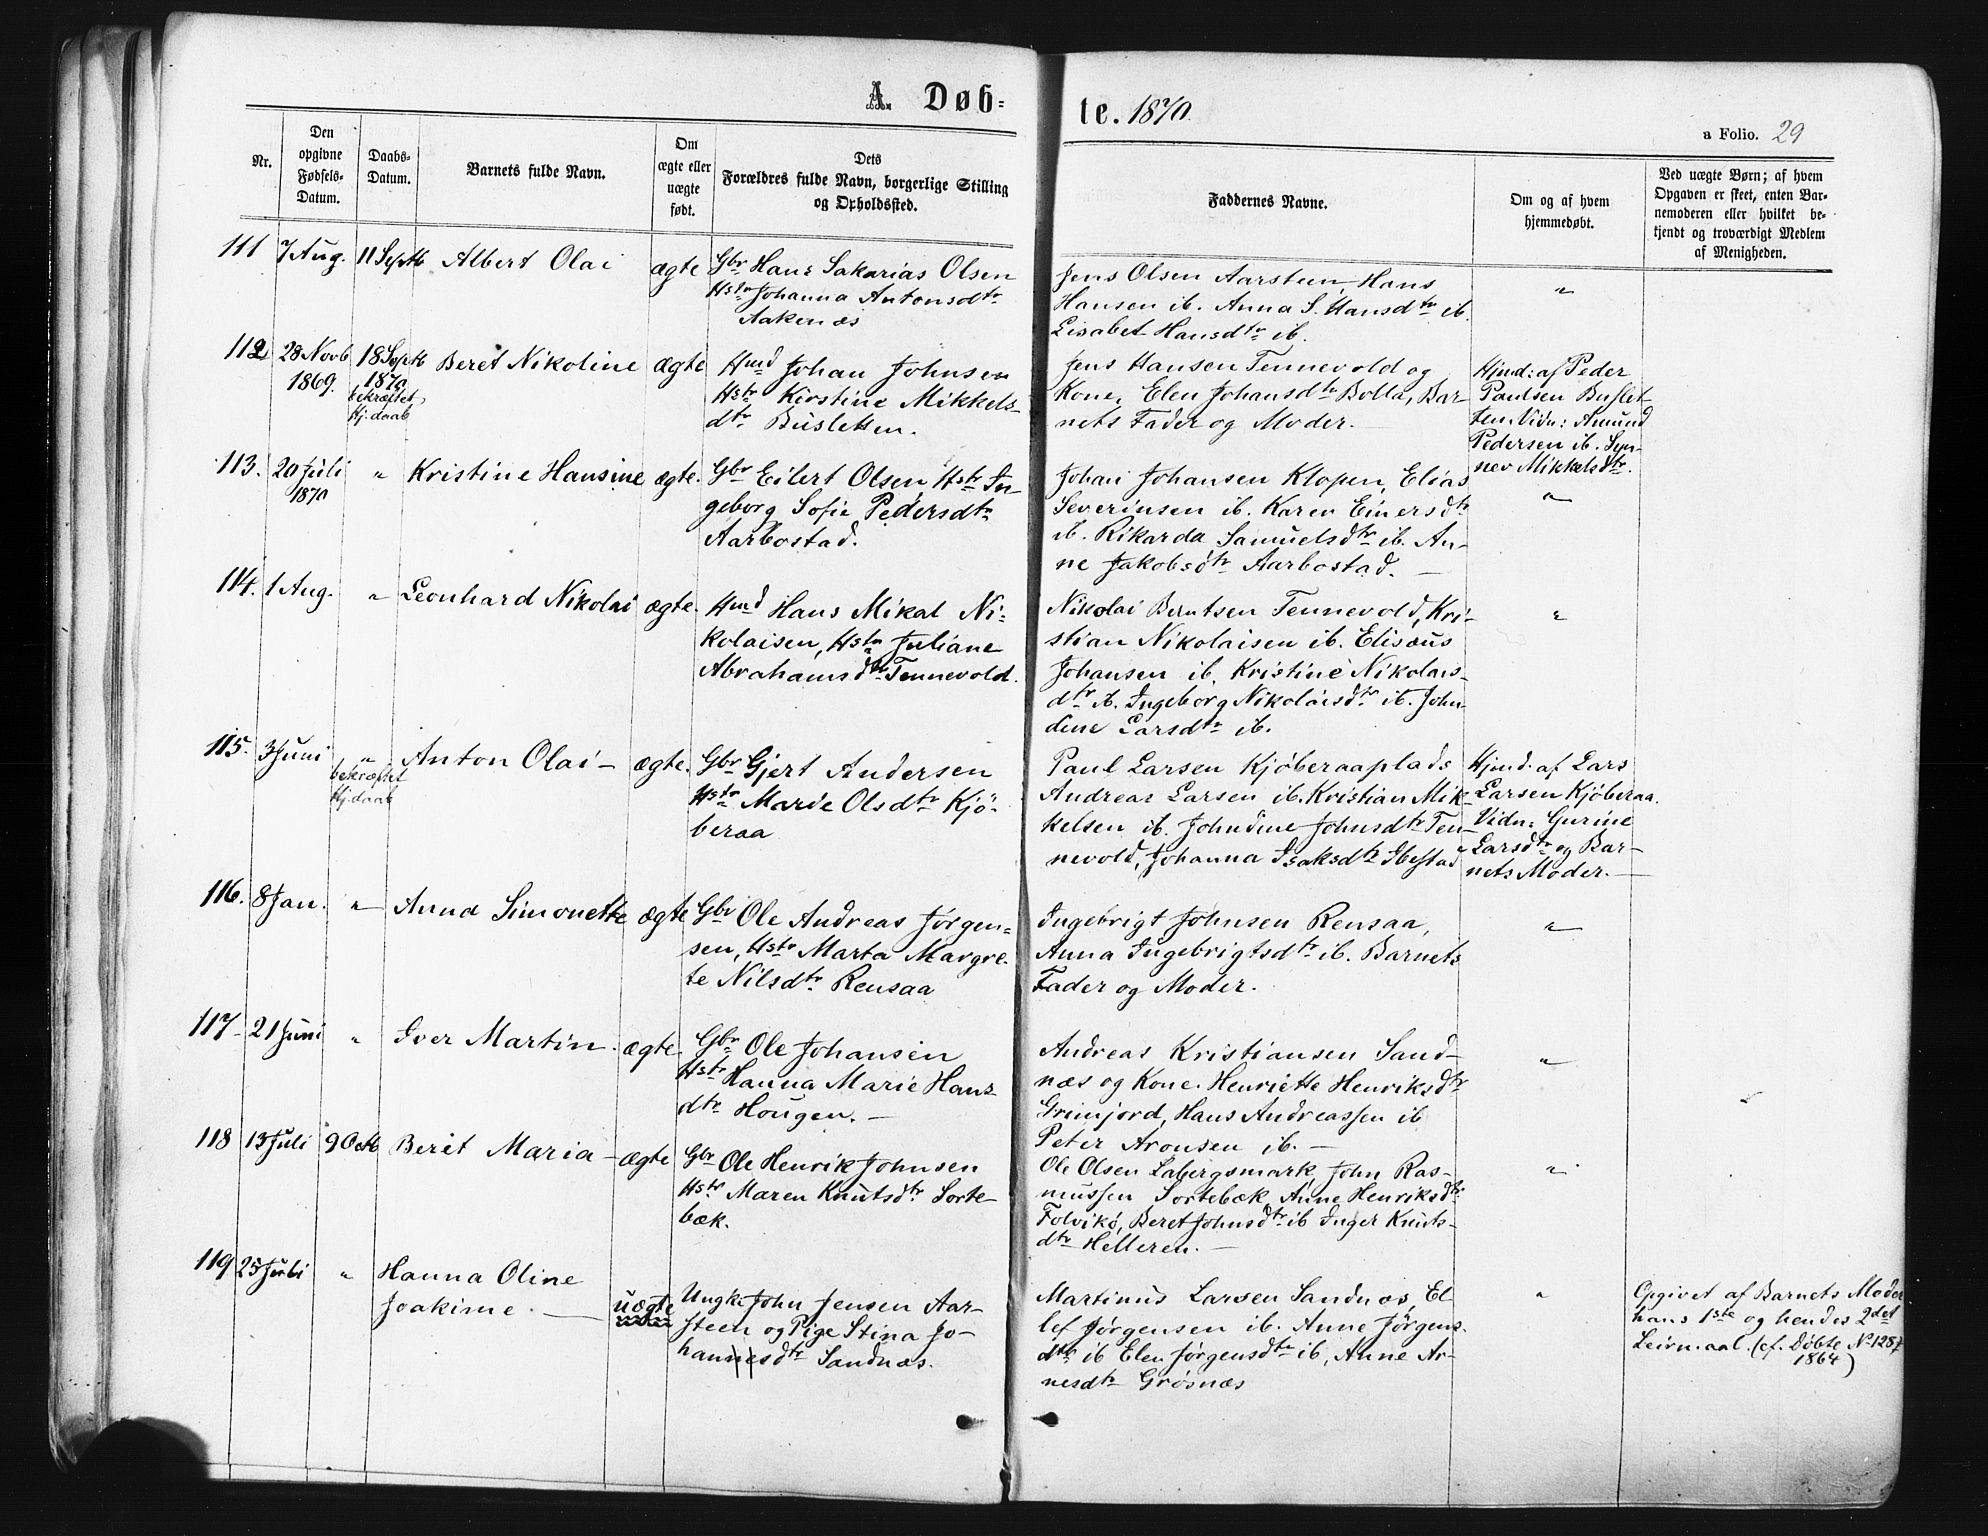 A. Døb=
te. 1870.
a Folio. 29
Nr.
Den opgivne Fødsels-Datum.
Daabs-Datum.
Barnets fulde Navn.
Om ægte eller uægte født.
Dets Forældres fulde Navn, borgerlige Stilling og Opholdssted.
Faddernes Navne.
Om og af hvem hjemmedøbt.
Ved uægte Børn; af hvem Opgaven er skeet, enten Barnemoderen eller hvilket bekjendt og troværdigt Medlem af Menigheden.
111 7 Aug. 11 Septb Albert Olai ægte
Gbr Hans Sakarias Olsen
Hstr Johanna Antonsdtr
Aakenæs
Jens Olsen Aarsteen, Hans
Hansen ib. Anna S. Hansdtr ib.
Lisabet Hansdtr ib.
"
112 28 Novb 1869. 18 Septb 1870 bekræftet Hj:daab Beret Nikoline ægte
Hmd Johan Johnsen
Hstr Kirstine Mikkels-
dtr Busletten.
Jens Hansen Tennevold og
Kone, Elen Johansdtr Bolla, Bar-
nets Fader og Moder.
Hjmd: af Peder
Paulsen Buslet-
ten. Vidn: Amund
Pedersen ib. Syn-
nev Mikkelsdtr.
113. 20 Juli 1870 " Kristine Hansine ægte.
Gbr Eilert Olsen Hstr In-
geborg Sofie Pedersdtr
Aarbostad.
Johan Johansen Klopen, Elias
Severinsen ib. Karen Einersdtr
ib. Rikarda Samuelsdtr ib. An-
ne Jakobsdtr Aarbostad. —
"
114. 1 Aug. " Leonhard Nikolai ægte.
Hmd Hans Mikal Ni-
kolaisen, Hstr Juliane
Abrahamsdtr Tennevold.
Nikolai Berntsen Tennevold, Kri-
stian Nikolaisen ib. Elisæus
Johansen ib. Kristine Nikolais-
dtr ib. Ingeborg Nikolaisdtr ib. John-
dine Larsdtr ib.
"
115. 3 Juni " bekræftet Hj:daab Anton Olai — ægte.
Gbr Gjert Andersen
Hstr Marie Olsdtr Kjö-
beraa
Paul Larsen Kjöberaaplads
Andreas Larsen ib. Kristian Mik-
kelsen ib. Johndine Johnsdtr Ten-
nevold, Johanna Isaksdtr Ibestad
Hjmd. af Lars
Larsen Kjöberaa.
Vidn: Gurine
Larsdtr og Bar-
nets Moder. —
116. 8 Jan. " Anna Simonette ægte
Gbr Ole Andreas Jørgen-
sen, Hstr Marta Margre-
te Nilsdtr Rensaa
Ingebrigt Johnsen Rensaa,
Anna Ingebrigtsdtr ib. Barnets
Fader og Moder.
"
117 21 Juni " Iver Martin ægte.
Gbr Ole Johansen
Hstr Hanna Marie Hans
dtr Hougen. —
Andreas Kristiansen Sand-
næs og Kone. Henriette Henriksdtr
Grimjord, Hans Andreassen ib
Peter Aronsen ib. —
"
118 13 Juli 9 Octb Berit Maria — ægte
Gbr Ole Henrik Johnsen
Hstr Maren Knutsdtr Sorte-
bæk.
Ole Olsen Labergsmark, John Ras-
mussen Sortebæk, Anne Henriksdtr
Folvikö, Beret Johnsdtr ib Inger Knuts-
dtr Helleren. —
"
119 25 Juli " Hanna Oline
Joakime — uægte
Ungk. John Jensen Aar-
steen og Pige Stina Jo-
hannesdtr Sandnæs.
Martinus Larsen Sandnæs, El-
lef Jørgensen ib. Anne Jørgens-
dtr ib Elen Jørgensdtr ib, Anne Ar-
nesdtr Grøsnæs
"
Opgivet af Barnets Moder
hans 1ste og hendes 2det
Leierm.aal. (cf. Døbte No 128,
1864)